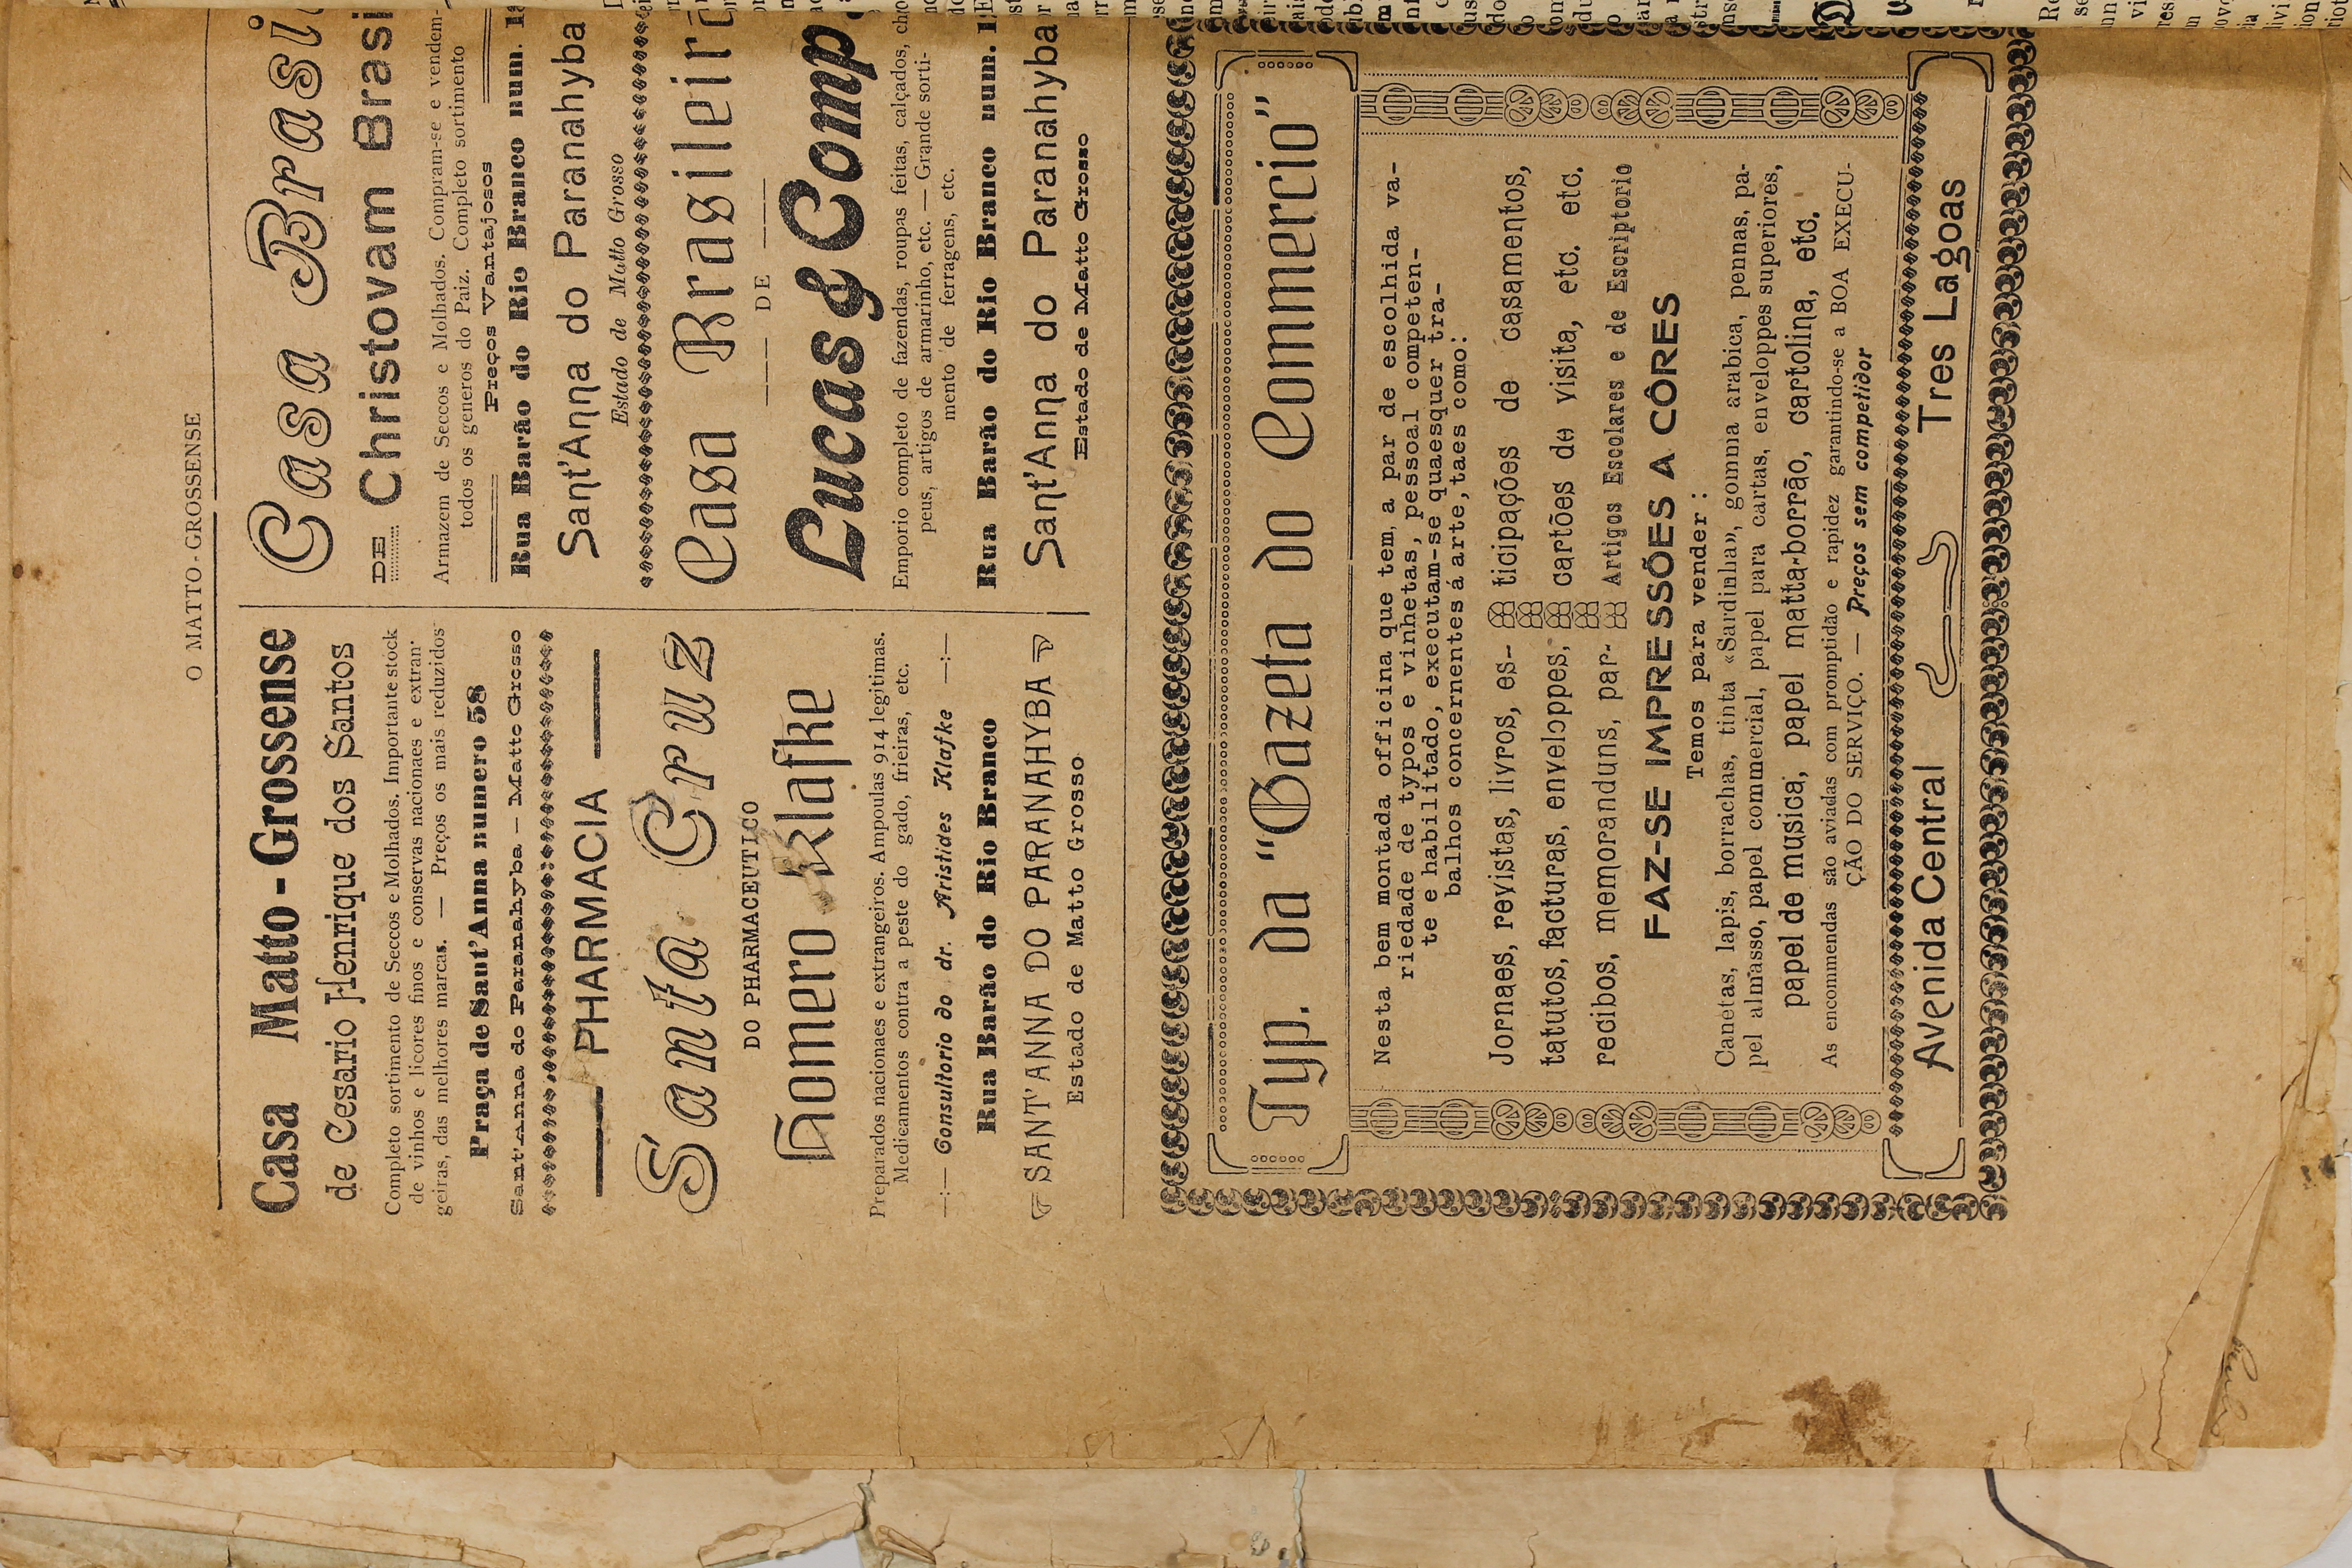 O MATTO-GROSSENSE
Casa Matto-Grossense
de Cesario Henrique dos Santos
Completo sortimento de Seccos e Molhados. Importante stock
de vinhos e licores finos e conservas nacionaes e extran-
geiras, das melhores marcas. — Preços os mais reduzidos
Praça de Sant'Anna numero 58
Sant'Anna do Paranahyba — Matto Grosso
PHARMACIA
Santa Cruz
DO PHARMACEUTICO
Homero Klafke
Preparados nacionaes e extrangeiros. Ampoulas 914 legitimas.
Medicamentos contra a peste do gado, frieiras, etc.
—:— Consultorio do dr. Aristides Klafke —:—
Rua Barão do Rio Branco
SANT'ANNA DO PARANAHYBA
Estado de Matto Grosso
Casa Brasi
DE Christovam Brasi
Armazem de Seccos e Molhados. Compram-se e vendem-
todos os generos do Paiz. Completo sortimento
Preços Vantajosos
Rua Barão do Rio Branco num.
Sant'Anna do Paranahyba
Estado de Matto Grosso
Casa Brasileira
— DE —
Lucas & Comp.
Emporio completo de fazendas, roupas feitas, calçados,
peus, artigos de armarinho, etc. — Grande sorti-
mento de ferragens, etc.
Rua Barão do Rio Branco num.
Sant'Anna do Paranahyba
Estado de Matto Grosso
Typ. da "Gazeta do Commercio"
Nesta bem montada officina que tem, a par de escolhida va-
riedade de typos e vinhetas, pessoal competen-
te e habilitado, executam-se quaesquer tra-
balhos concernentes á arte, taes como:
Jornaes, revistas, livros, es-
tatutos, facturas, enveloppes,
recibos, memoranduns, par-
ticipações de casamentos,
cartões de visita, etc. etc.
Artigos Escolares e de Escriptorio
FAZ-SE IMPRESSÕES A CÔRES
Temos para vender:
Canetas, lapis, borrachas, tinta «Sardinha», gomma arabica, pennas, pa-
pel almasso, papel commercial, papel para cartas, enveloppes superiores,
papel de musica, papel matta-borrão, cartolina, etc.
As encommendas são aviadas com promptidão e rapidez garantindo-se a BOA EXECU-
ÇÃO DO SERVIÇO. — Preços sem competidor
Avenida Central Tres Lagoas